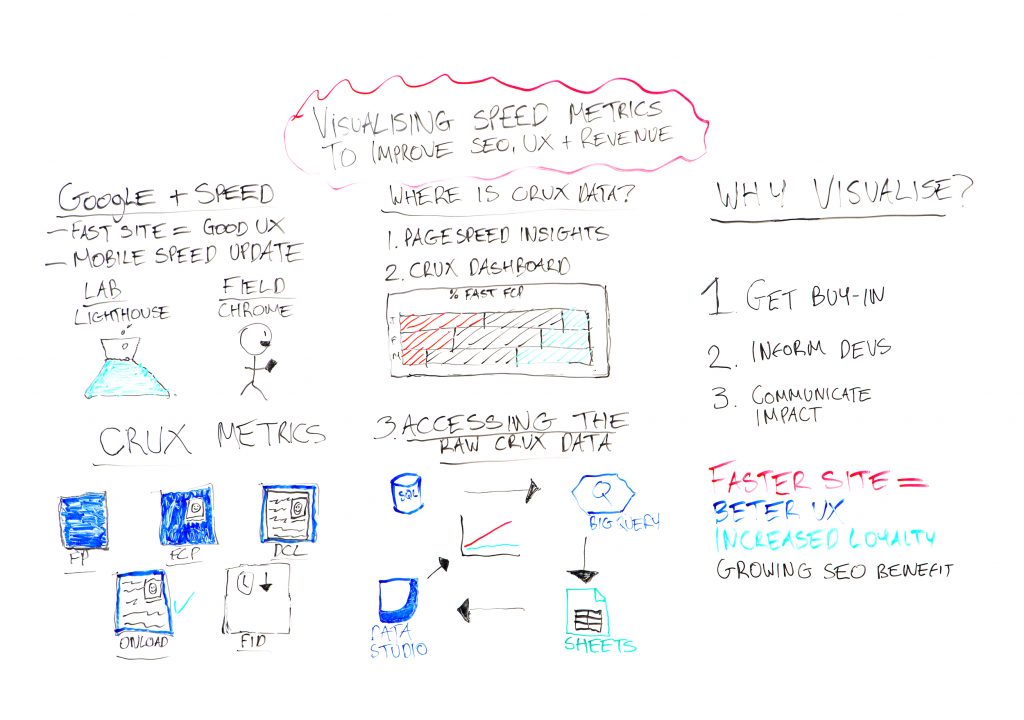 VISUALISING SPEED METRICS
TO IMPROVE SEO, UX + REVENUE
GOOGLE + SPEED
- FAST SITE = GOOD UX
- MOBILE SPEED UPDATE
LAB
LIGHTHOUSE
FIELD
CHROME
CRUX METRICS
FP
FCP
DCL
ONLOAD
FID
WHERE IS CRUX DATA?
1. PAGESPEED INSIGHTS
2. CRUX DASHBOARD
% FAST FCP
J
F
M
3. ACCESSING THE
RAW CRUX DATA
SQL
Q
BIGQUERY
DATA
STUDIO
SHEETS
WHY VISUALISE?
1. GET BUY-IN
2. INFORM DEVS
3. COMMUNICATE
IMPACT
FASTER SITE =
BETER UX
INCREASED LOYALTY
GROWING SEO BENEFIT